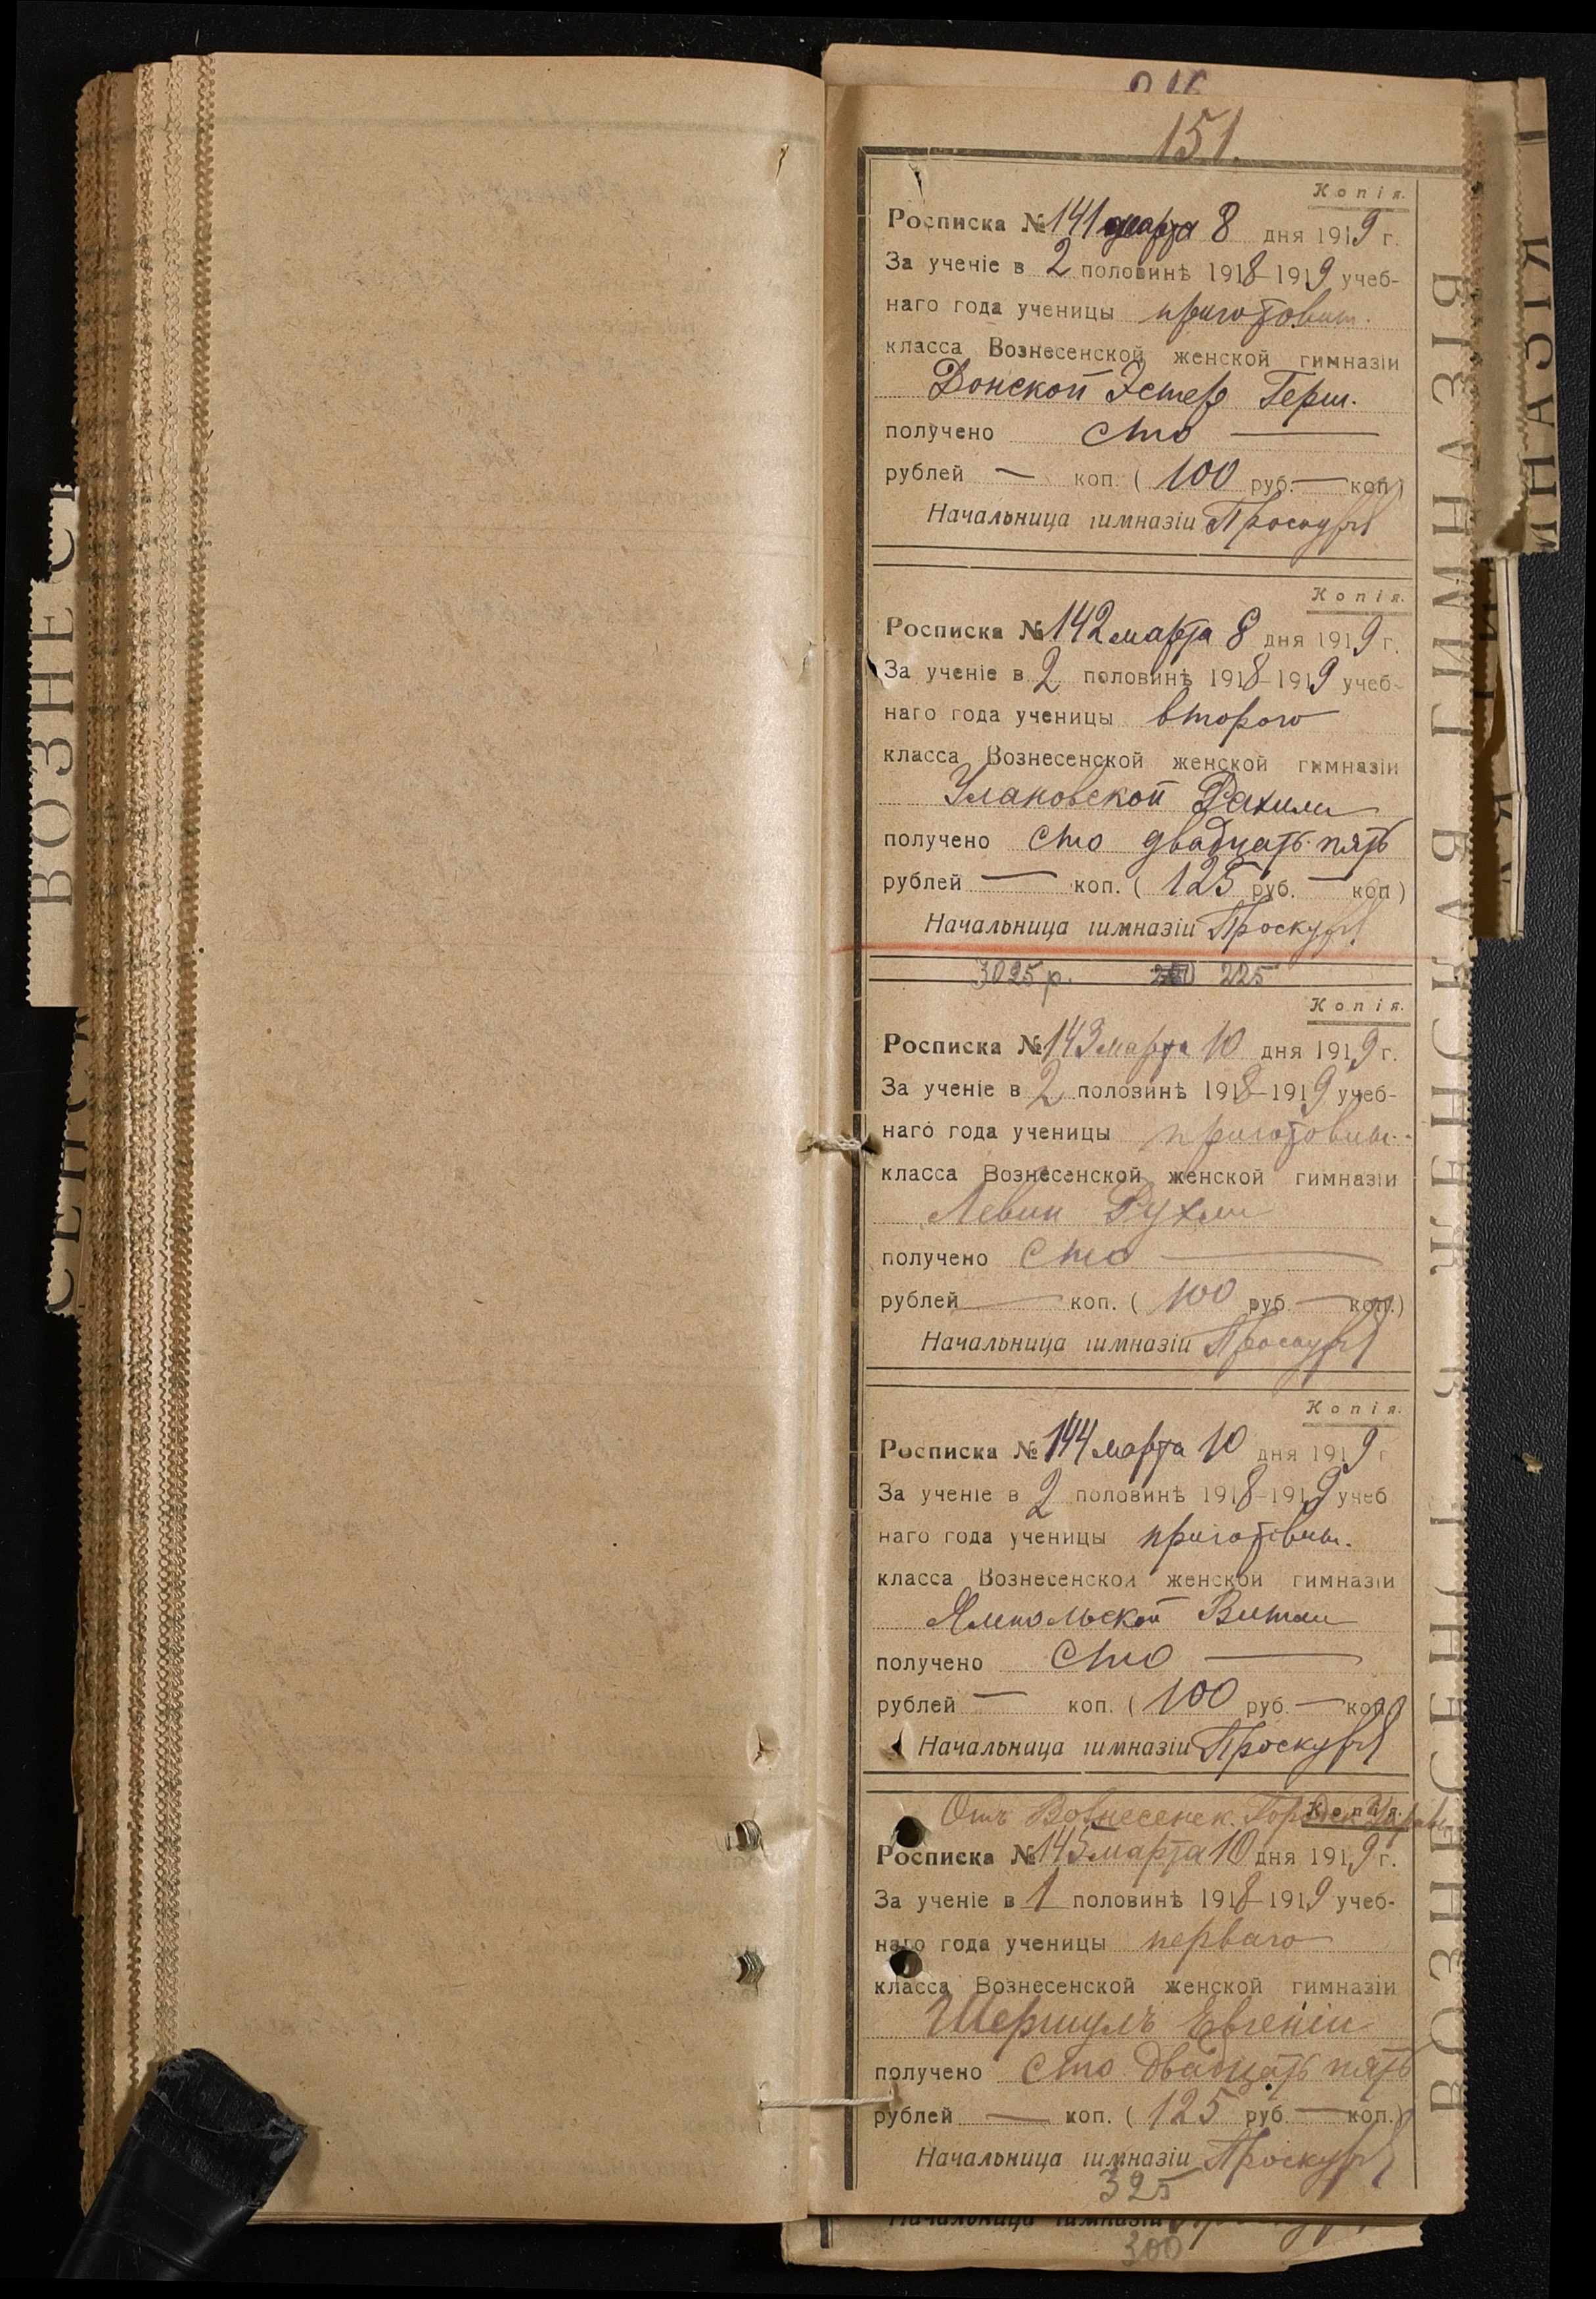 151.
Копія.
Росписка № 141 марта 8 дня 1919 г.
За ученіе в 2 половинѣ 1918-1919 учеб-
наго года ученицы приготовит.
класса Вознесенской женской гимназіи
Донской Эстер Герш.
получено сто —
рублей — коп. (100 руб. — коп)
Начальница гимназіи
Копія.
Росписка № 142 марта 8 дня 1919 г.
За ученіе в 2 половинѣ 1918-1919 учеб-
наго года ученицы второго
класса Вознесенской женской гимназіи
Улановской Рахили
получено сто двадцать пять
рублей — коп. (125 руб. — коп)
Начальница гимназіи
3025 р. 225
Копія.
Росписка № 143 марта 10 дня 1919 г.
За ученіе в 2 половинѣ 1918-1919 учеб-
наго года ученицы приготовит.
класса Вознесенской женской гимназіи
Левин Рухли
получено сто —
рублей — коп. (100 руб. — коп.)
Начальница гимназіи
Копія.
Росписка № 144 марта 10 дня 1919 г
За ученіе в 2 половинѣ 1918-1919 учеб
наго года ученицы приготовит.
класса Вознесенской женской гимназіи
Ямпольской
получено сто —
рублей — коп. (100 руб. — коп.)
Начальница гимназіи
Отъ Вознесенск. Городск. Управы
Копія.
Росписка № 145 марта 10 дня 1919 г.
За ученіе в 1 половинѣ 1918-1919 учеб-
наго года ученицы перваго
класса Вознесенской женской гимназіи
Шершулъ Евгеніи
получено сто двадцать пять
рублей — коп. (125 руб. — коп.)
Начальница гимназіи
325
Начальница гимназіи
300
ВОЗНЕСЕНСКАЯ ЖЕНСКАЯ ГИМНАЗІЯ
ВОЗНЕС